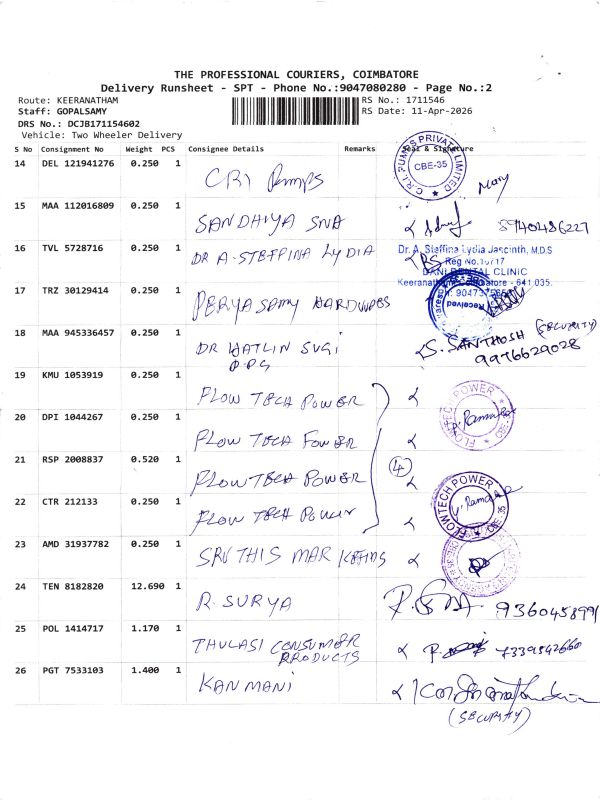 THE PROFESSIONAL COURIERS, COIMBATORE
Delivery Runsheet - SPT - Phone No.:9047080280 - Page No.:2
Route: KEERANATHAM
RS No.: 1711546
Staff: GOPALSAMY
RS Date: 11-Apr-2026
DRS No.: DCJB171154602
Vehicle: Two Wheeler Delivery
S No Consignment No Weight PCS Consignee Details Remarks Seal & Signature
14 DEL 121941276 0.250 1 CRI Pumps
C.R.I. PUMPS PRIVATE LIMITED
CBE-35
15 MAA 112016809 0.250 1 SANDHIYA SNA
16 TVL 5728716 0.250 1 DR A. STEFFINA LYDIA
Dr. A. Steffina Lydia Jascinth, M.D.S
Reg No.
DENTAL CLINIC
Keeranatham, Coimbatore - 641 035.
17 TRZ 30129414 0.250 1 PERYASAMY HARDWARES
Received
18 MAA 945336457 0.250 1 DR HATLIN SUGI
S. SANTHOSH (SECURITY)
9976629028
19 KMU 1053919 0.250 1 FLOW TECH POWER
FLOWTECH POWER
20 DPI 1044267 0.250 1 FLOW TECH POWER
21 RSP 2008837 0.520 1 FLOW TECH POWER
4
22 CTR 212133 0.250 1 FLOW TECH POWER
FLOWTECH POWER
CBE-35
23 AMD 31937782 0.250 1 SRUTHIS MARKETING
24 TEN 8182820 12.690 1 R. SURYA
25 POL 1414717 1.170 1 THULASI CONSUMER
PRODUCTS
26 PGT 7533103 1.400 1 KANMANI
(SECURITY)